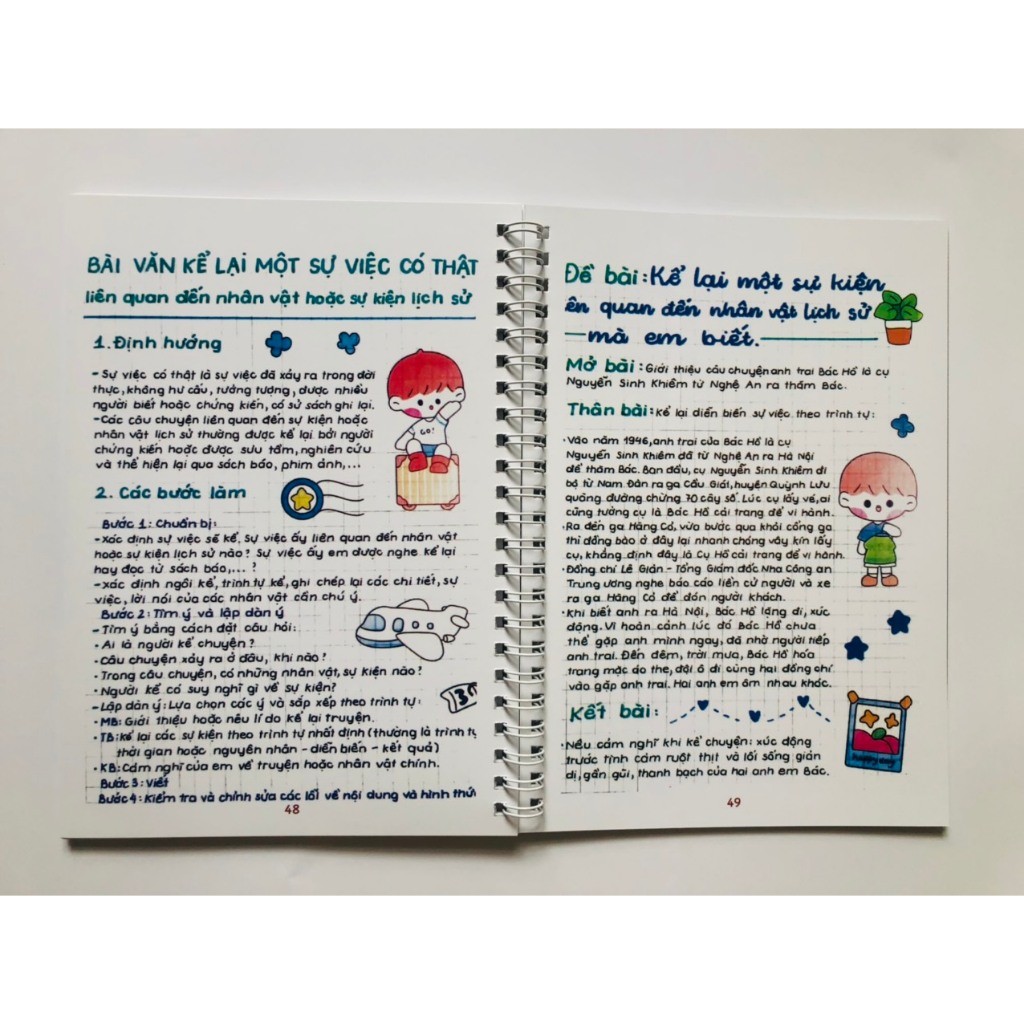 BÀI VĂN KỂ LẠI MỘT SỰ VIỆC CÓ THẬT
liên quan đến nhân vật hoặc sự kiện lịch sử
1. Định hướng
- Sự việc có thật là sự việc đã xảy ra trong đời
thực, không hư cấu, tưởng tượng, được nhiều
người biết hoặc chứng kiến, có sử sách ghi lại.
- Các câu chuyện liên quan đến sự kiện hoặc
nhân vật lịch sử thường được kể lại bởi người
chứng kiến hoặc được sưu tầm, nghiên cứu
và thể hiện lại qua sách báo, phim ảnh,...
GO!
2. Các bước làm
Bước 1: Chuẩn bị:
- Xác định sự việc sẽ kể. Sự việc ấy liên quan đến nhân vật
hoặc sự kiện lịch sử nào? Sự việc ấy em được nghe kể lại
hay đọc từ sách báo,... ?
- Xác định ngôi kể, trình tự kể, ghi chép lại các chi tiết, sự
việc, lời nói của các nhân vật cần chú ý.
Bước 2: Tìm ý và lập dàn ý
- Tìm ý bằng cách đặt câu hỏi:
• Ai là người kể chuyện?
• Câu chuyện xảy ra ở đâu, khi nào?
• Trong câu chuyện, có những nhân vật, sự kiện nào?
• Người kể có suy nghĩ gì về sự kiện?
- Lập dàn ý: Lựa chọn các ý và sắp xếp theo trình tự:
• MB: Giới thiệu hoặc nêu lí do kể lại truyện.
• TB: kể lại các sự kiện theo trình tự nhất định (thường là trình tự
thời gian hoặc nguyên nhân - diễn biến - kết quả)
• KB: Cảm nghĩ của em về truyện hoặc nhân vật chính.
Bước 3: Viết
Bước 4: Kiểm tra và chỉnh sửa các lỗi về nội dung và hình thức
48
Đề bài: Kể lại một sự kiện
ên quan đến nhân vật lịch sử
mà em biết.
Mở bài: Giới thiệu câu chuyện anh trai Bác Hồ là cụ
Nguyễn Sinh Khiêm từ Nghệ An ra thăm Bác.
Thân bài: kể lại diễn biến sự việc theo trình tự:
• Vào năm 1946, anh trai của Bác Hồ là cụ
Nguyễn Sinh Khiêm đã từ Nghệ An ra Hà Nội
để thăm Bác. Ban đầu, cụ Nguyễn Sinh Khiêm đi
bộ từ Nam Đàn ra ga Cầu Giát, huyện Quỳnh Lưu
quãng đường chừng 70 cây số. Lúc cụ lấy vé, ai
cũng tưởng cụ là Bác Hồ cải trang để vi hành.
• Ra đến ga Hàng Cỏ, vừa bước qua khỏi cổng ga
thì đồng bào ở đây lại nhanh chóng vây kín lấy
cụ, khẳng định đây là Cụ Hồ cải trang để vi hành.
• Đồng chí Lê Giản - Tổng Giám đốc Nha Công an
Trung ương nghe báo cáo liền cử người và xe
ra ga Hàng Cỏ để đón người khách.
• Khi biết anh ra Hà Nội, Bác Hồ lặng đi, xúc
động. Vì hoàn cảnh lúc đó Bác Hồ chưa
thể gặp anh mình ngay, đã nhờ người tiếp
anh trai. Đến đêm, trời mưa, Bác Hồ hóa
trang mặc áo the, đội ô đi cùng hai đồng chí
vào gặp anh trai. Hai anh em ôm nhau khóc.
Kết bài:
• Nêu cảm nghĩ khi kể chuyện: xúc động
trước tình cảm ruột thịt và lối sống giản
dị, gần gũi, thanh bạch của hai anh em Bác.
happy day
49